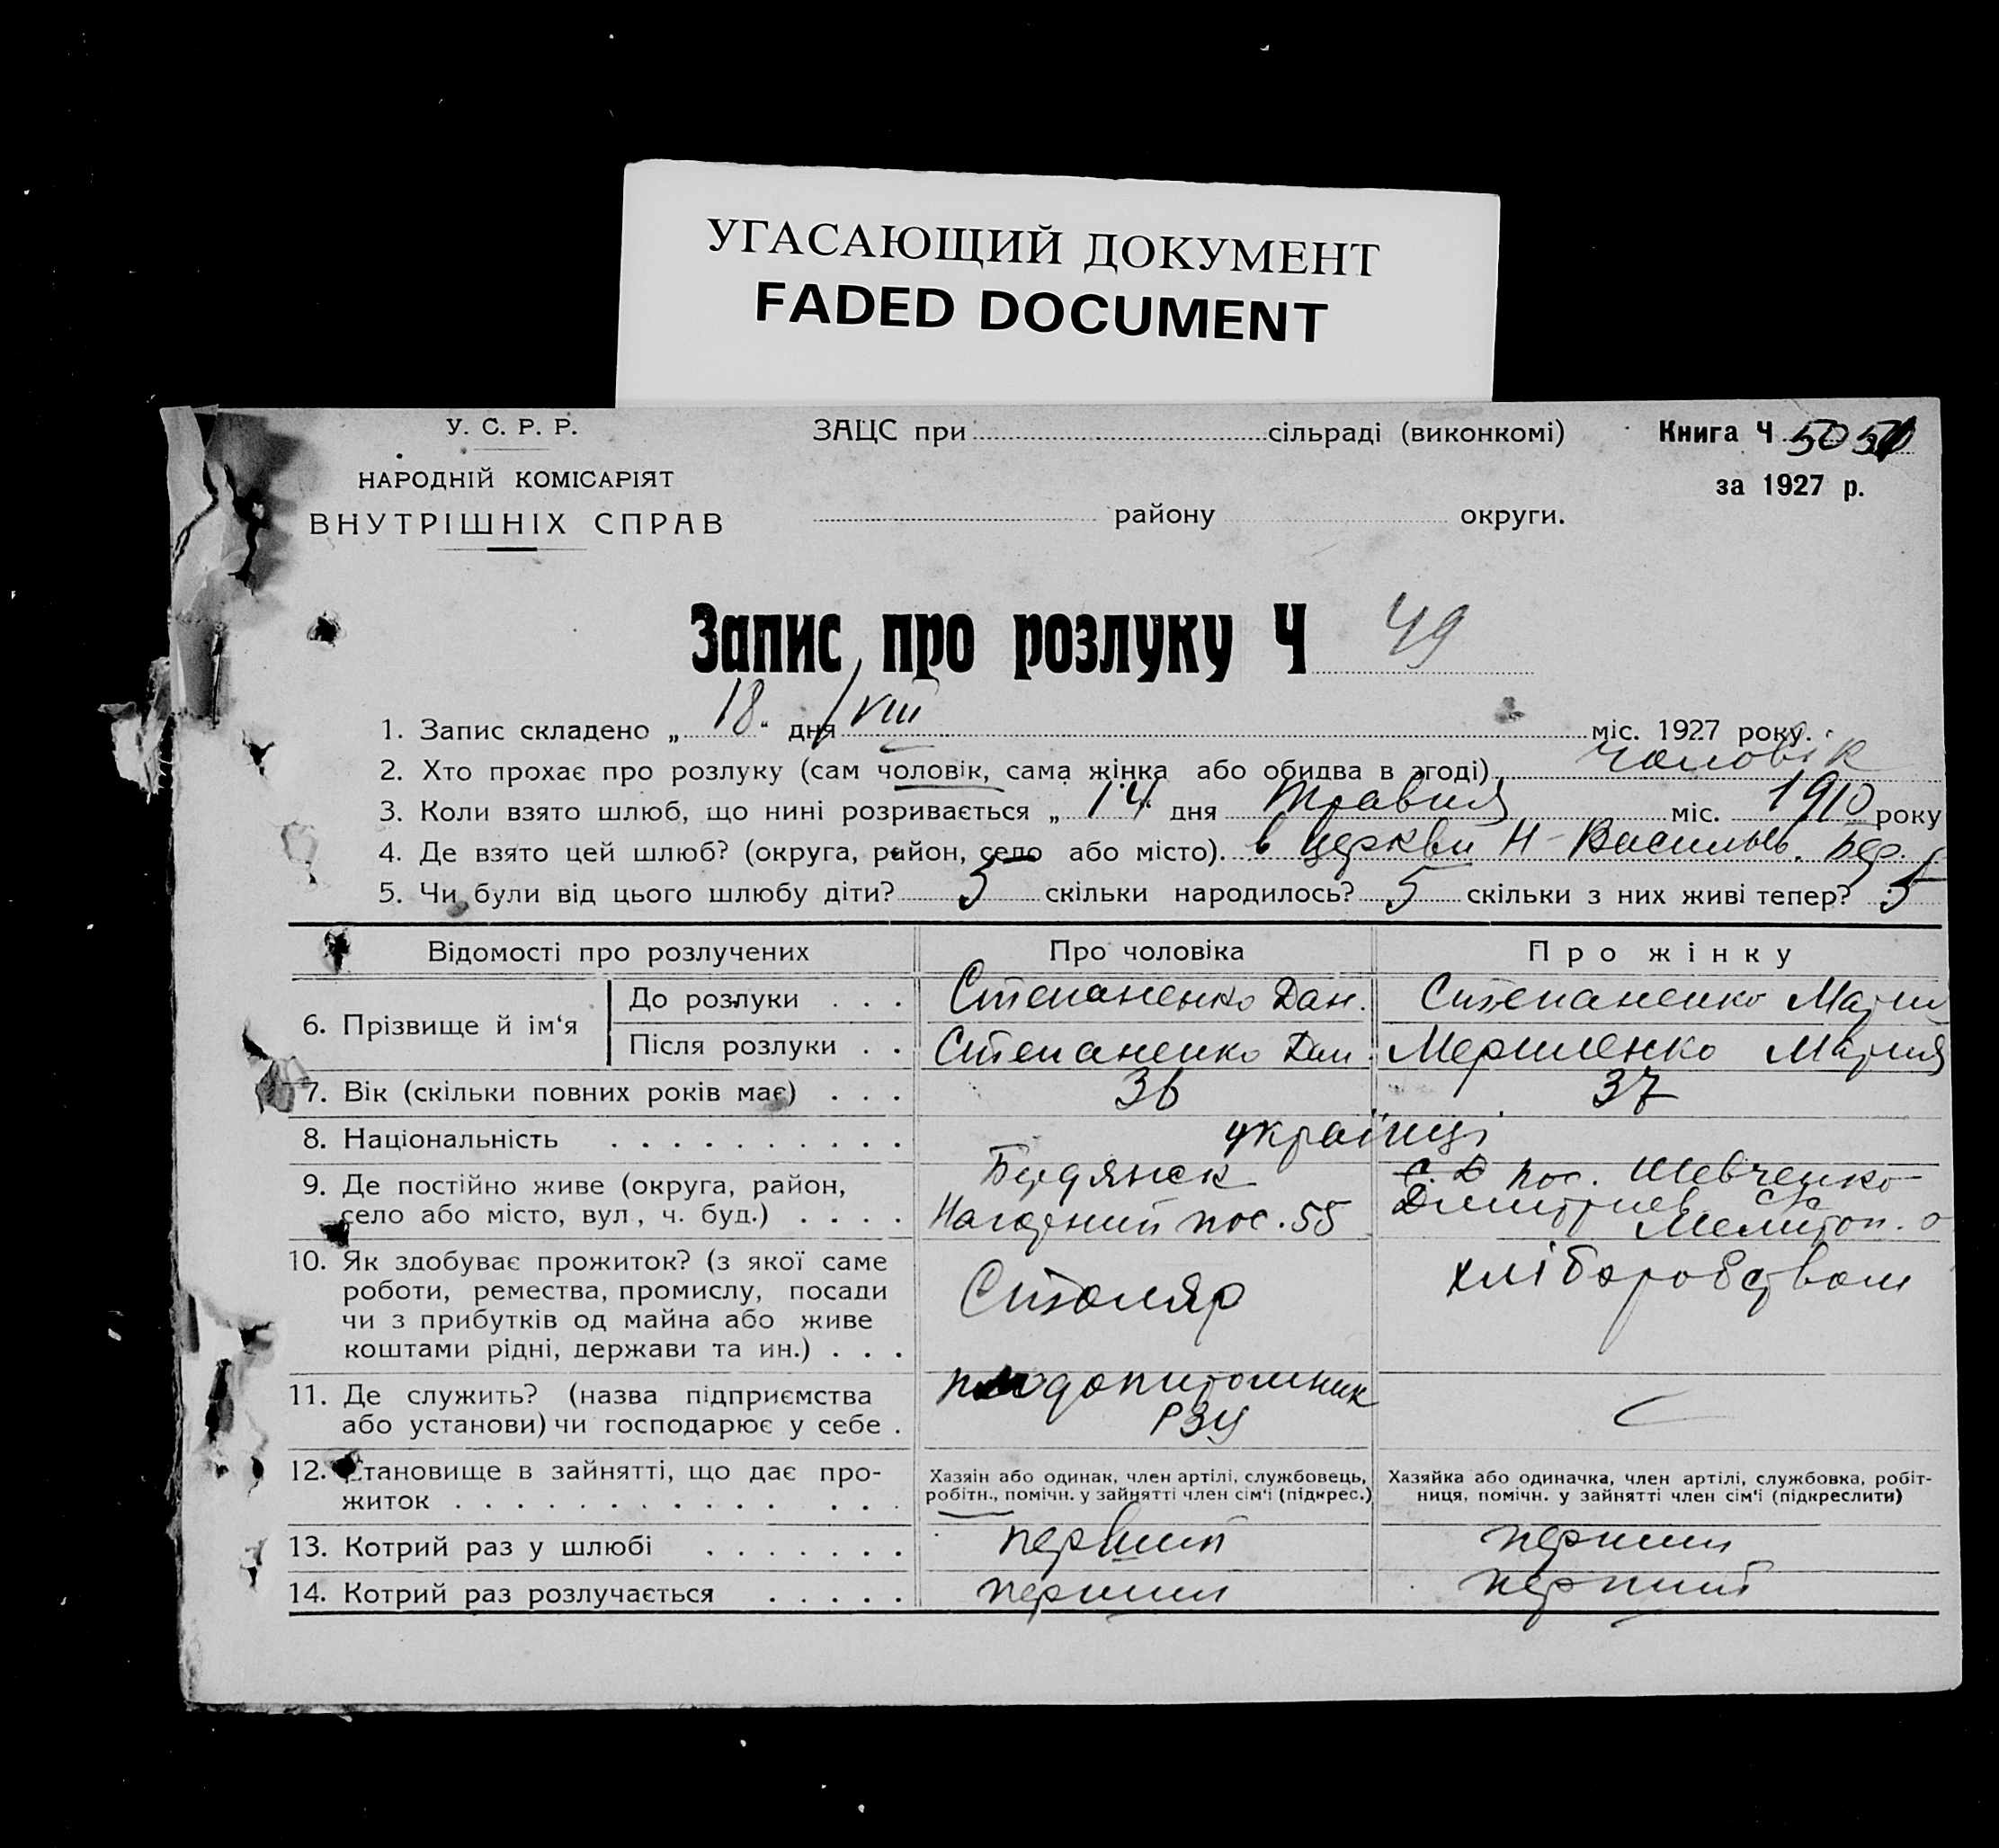 УГАСАЮЩИЙ ДОКУМЕНТ
FADED DOCUMENT
У. С. Р. Р.
НАРОДНІЙ КОМІСАРІЯТ
ВНУТРІШНІХ СПРАВ
ЗАЦС при сільраді (виконкомі)
району округи.
Книга Ч 50
за 1927 р.
Запис про розлуку Ч 49
1. Запис складено „ 18 “ дня VIII міс. 1927 року.
2. Хто прохає про розлуку (сам чоловік, сама жінка або обидва в згоді) чоловік
3. Коли взято шлюб, що нині розривається „ 14 дня травня міс. 1910 року
4. Де взято цей шлюб? (округа, район, село або місто). в церкви Н-Васильев. Бер.
5. Чи були від цього шлюбу діти? 5 скільки народилось? 5 скільки з них живі тепер? 5
Відомості про розлучених Про чоловіка Про жінку
6. Прізвище й ім‘я
До розлуки . . . Степаненко Дан. Степаненко Мария
Після розлуки . . Степаненко Дан. Мериленко Мария
7. Вік (скільки повних років має) . . . 36 37
8. Національність . . . . . . . . . . українці
9. Де постійно живе (округа, район, село або місто, вул, ч. буд.) . . . .
Бердянск
Нагорний пос. 55
пос. Шевченко
Дмитриев.
Мелитоп. о
10. Як здобуває прожиток? (з якої саме
роботи, ремества, промислу, посади
чи з прибутків од майна або живе
коштами рідні, держави та ин.) . . .
Столяр
хліборобством
11. Де служить? (назва підприємства
або установи) чи господарює у себе .
плодопитомник
РЗУ
12. Становище в зайнятті, що дає про-
житок . . . . . . . . . . . . . .
Хазяїн або одинак, член артілі, службовець,
робітн., помічн. у зайнятті член сім‘ї (підкрес.)
Хазяйка або одиначка, член артілі, службовка, робіт-
ниця, помічн. у зайнятті член сім‘ї (підкреслити)
13. Котрий раз у шлюбі . . . . . . . первший перший
14. Котрий раз розлучається . . . . . перший перший